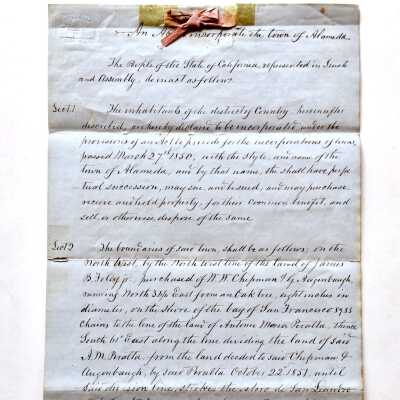 An Act incorporate the town of Alameda
The People of the State of California, represented in Senate
and Assembly, do enact as follows
Sect 1 The inhabitants of the district of Country hereinafter
described, are hereby declared to be incorporated, under the
provisions of an Act to provide for the incorporations of towns,
passed March 27th 1850, with the style, and name of the
town of Alameda, and by that name, the shall have perpe
tual succession, may sue, and be sued, and may purchase
receive and hold property, for their common benefit, and
sell, or otherwise dispose of the same
Sect 2 The boundaries of said town, shall be as follows: on the
North West, by the North West line of the land of James
B. Foley purchased of W. W. Chipman & Augenbaugh,
running North East from an Oak tree, eight inches in
diameter, on the shore of the bay of San Francisco
chains to the line of the land of Antonio Maria Peralta, thence
South East along the line dividing the land of said
A. M. Peralta, from the land deeded to said Chipman &
Augenbaugh, by said Peralta October 22d 1851, until
said division line, strikes the shore de San Leandro